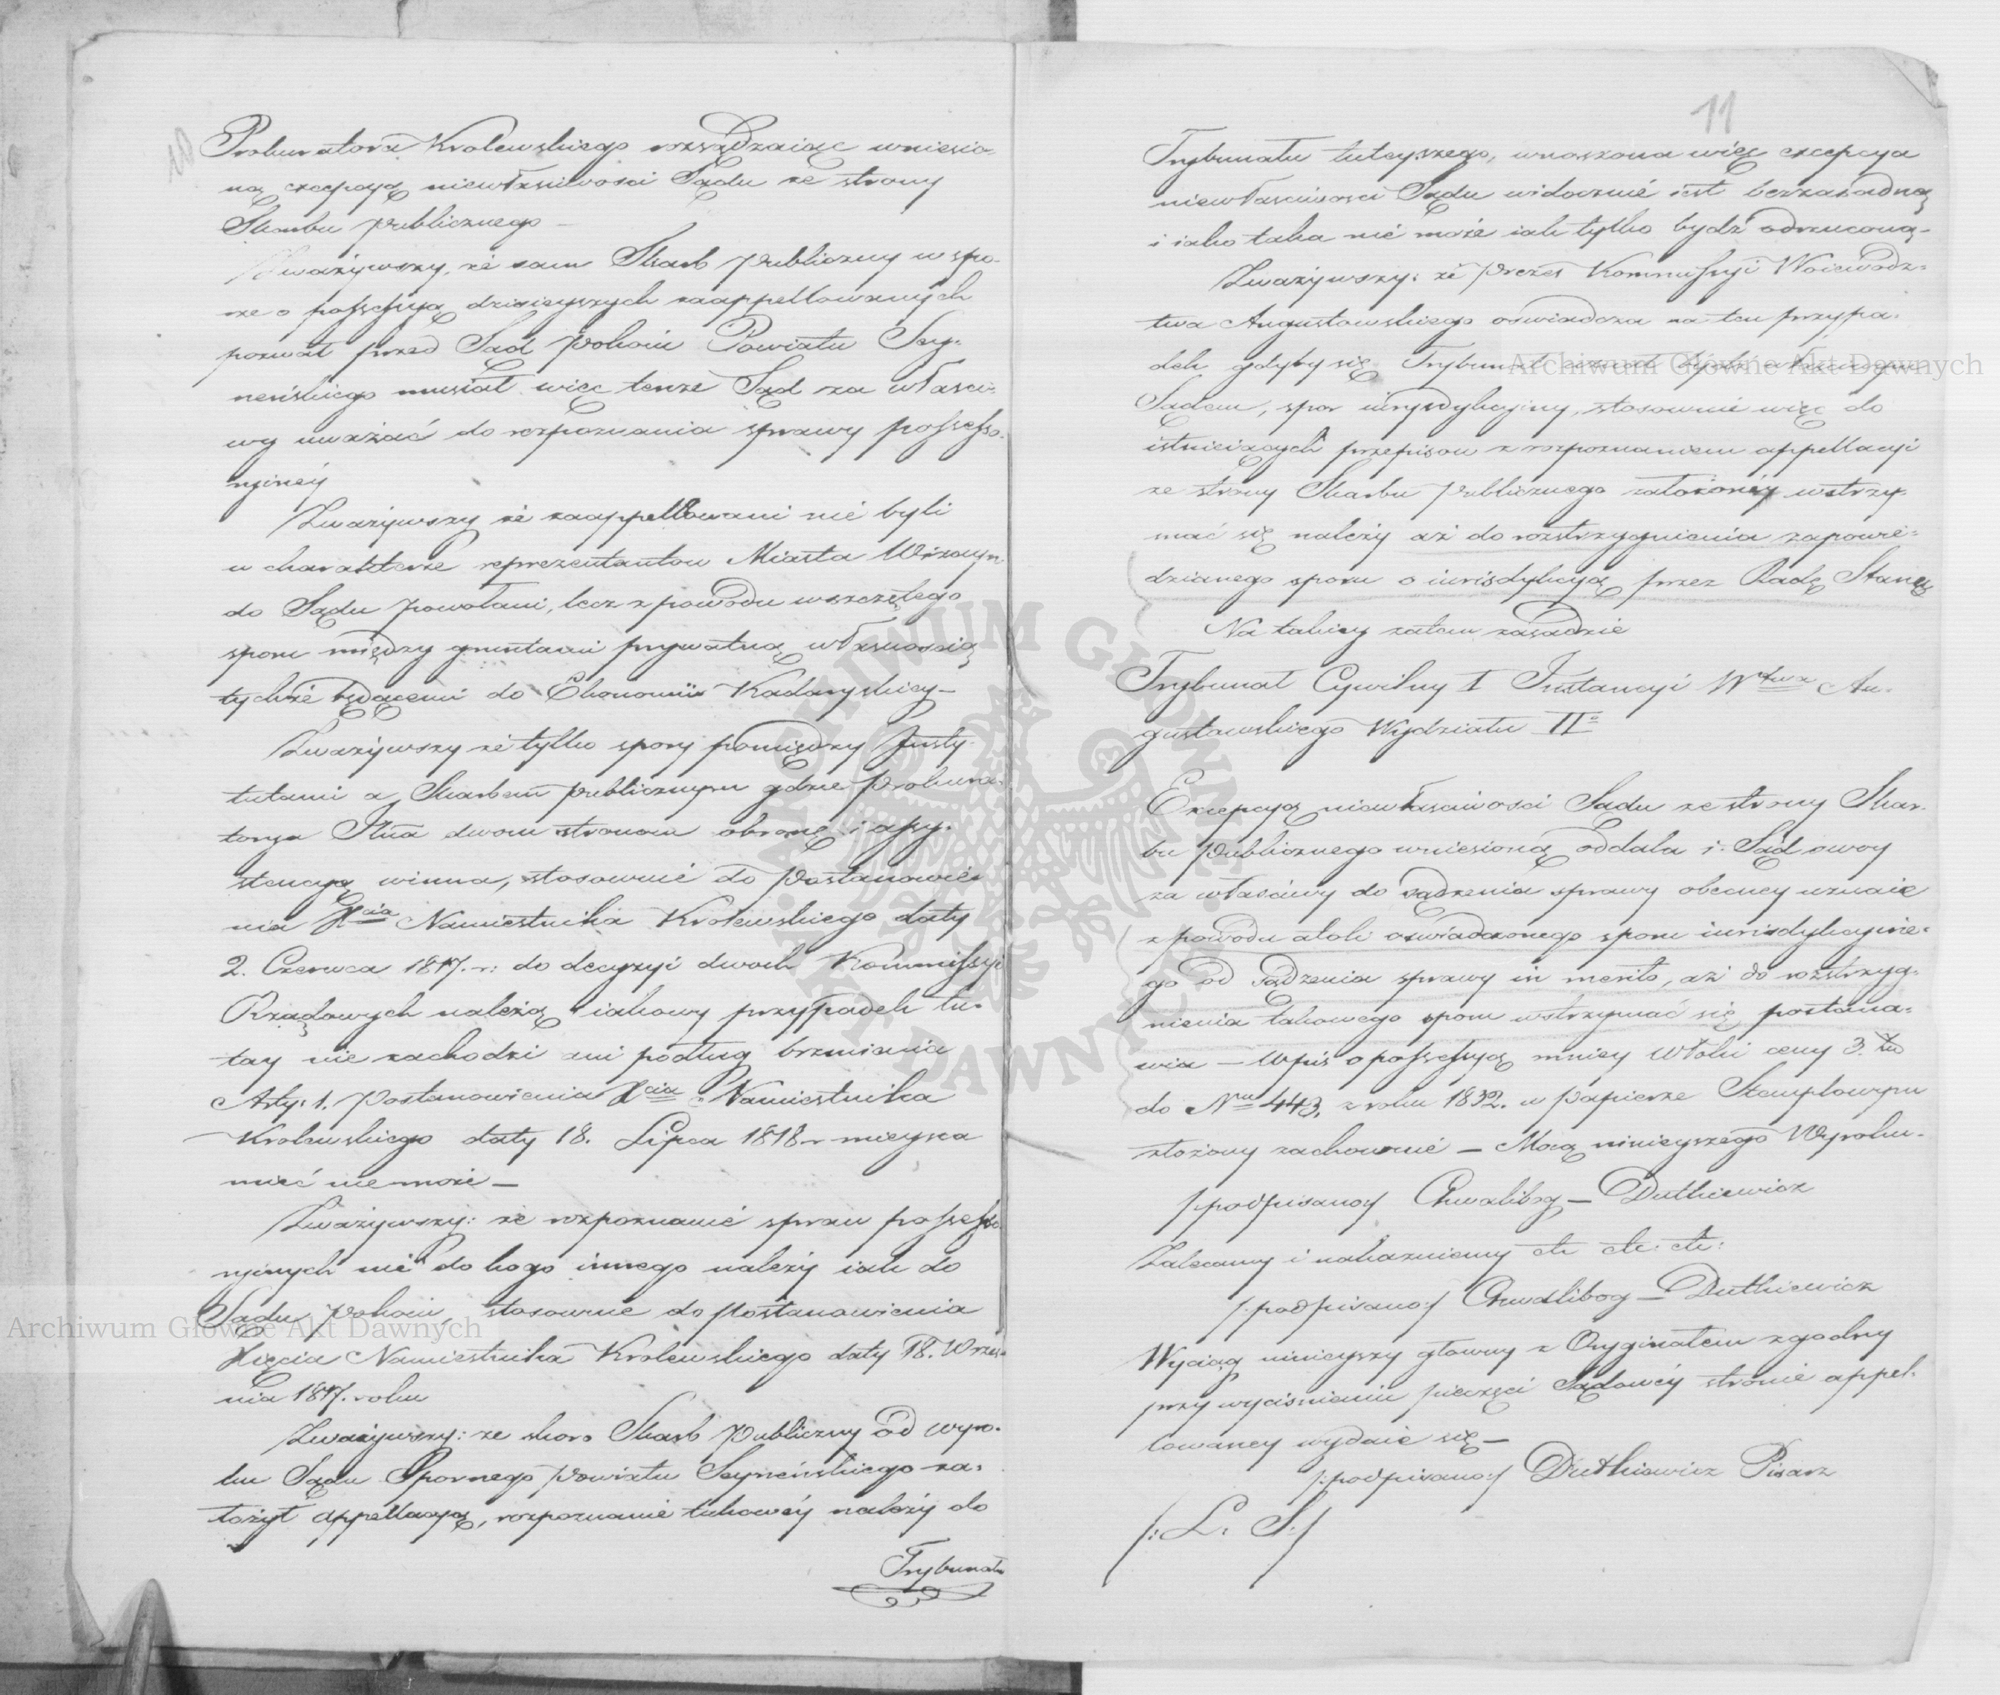 10
Prokuratora Krolewskiego rozsądzaiąc wniesio-
ną excepcyą niewłaściwości Sądu ze strony
Skarbu publicznego —
Zważywszy, że sam Skarb publiczny w spo-
rze o possessyą dzisieyszych zaappellowanych
pozwał przed Sąd Pokoiu Powiatu Sey-
neńskiego musiał więc tenże Sąd za właści-
wy uważać do rozpoznania sprawy possesso-
ryiney
Zważywszy że zaappellowani nie byli
w charakterze reprezentantow Miasta Wiżayn
do Sądu powołani, lecz z powodu wszczętego
sporu między gruntami prywatną własnością
tychże będącemi do Ekonomii Kadaryskiey —
Zważywszy że tylko spory pomiędzy Insty-
tutami a Skarbem publicznym gdzie Prokura-
torya Jlna dwom stronom obronę i assy-
stencyą winna, stosownie do Postanowie-
nia Xcia Namiestnika Krolewskiego daty
2. Czerwca 1817. r: do decyzyi dwoch Kommissyi
Rządowych należą iakowy przypadek tu-
tay nie zachodzi ani podług brzmienia
Arty: 1. Postanowienia Xcia Namiestnika
Krolewskiego daty 18. Lipca 1818 r mieysca
mieć nie może —
Zważywszy: że rozpoznanie spraw possesso-
ryinych nie do kogo innego należy iak do
Sądu Pokoiu, stosownie do Postanowienia
Xięcia Namiestnika Krolewskiego daty 18. Wrześ-
nia 1817. roku
Zważywszy: że skoro Skarb Publiczny od wyro-
ku Sądu Spornego Powiatu Seyneńskiego za-
łożył appellacyą, rozpoznanie takowéy należy do
Trybunału
11
Trybunału tuteyszego, wnoszona więc excepcya
niewłaściwości Sądu widocznie iest bezzasadną
i iako taka nie może iak tylko bydź odrzuconą —
Zważywszy: że Prezes Kommissyi Woiewodz-
twa Augustowskiego oświadcza na ten przypa-
dek gdyby się Trybunał uznał bydź właściwym
Sądem, spor iurysdykcyiny, stosownie więc do
istnieiących przepisow z rozpoznaniem appellacyi
ze strony Skarbu Publicznego założoney wstrzy-
mać się należy aż do rozstrzygnienia zapowie-
dzianego sporu o iurisdykcyą przez Radę Stanu
Na takiey zatem zasadzie
Trybunał Cywilny I Instancyi Wdztwa Au-
gustowskiego Wydziału IIo
Excepcyą niewłaściwości Sądu ze strony Skar-
bu Publicznego wniesioną oddala i Sąd swoy
za właściwy do sądzenia sprawy obecney uznaie
z powodu atoli oświadczonego sporu iurisdykcyine-
go od sądzenia sprawy in merito, aż do rozstrzyg-
nienia takowego sporu wstrzymać się postana-
wia — Wpis o possessyą mniey Włoki ceny 3. Złt
do Nru 443. z roku 1832. w papierze Stemplowym
złożony zachować — Mocą ninieyszego Wyroku —
/:podpisano:/ Chwalibog — Dutkiewicz
Zalecamy i nakazuiemy etc etc: etc:
/:podpisano:/ Chwalibog — Dutkiewicz
Wyciąg ninieyszy głowny z Oryginałem zgodny
przy wyciśnieniu pieczęci Sądowey stronie appel-
lowaney wydaie się —
/:podpisano:/ Dutkiewicz Pisarz
/: L. S :/
Archiwum Główne Akt Dawnych
Archiwum Główne Akt Dawnych
ARCHIWUM GŁÓWNE AKT DAWNYCH